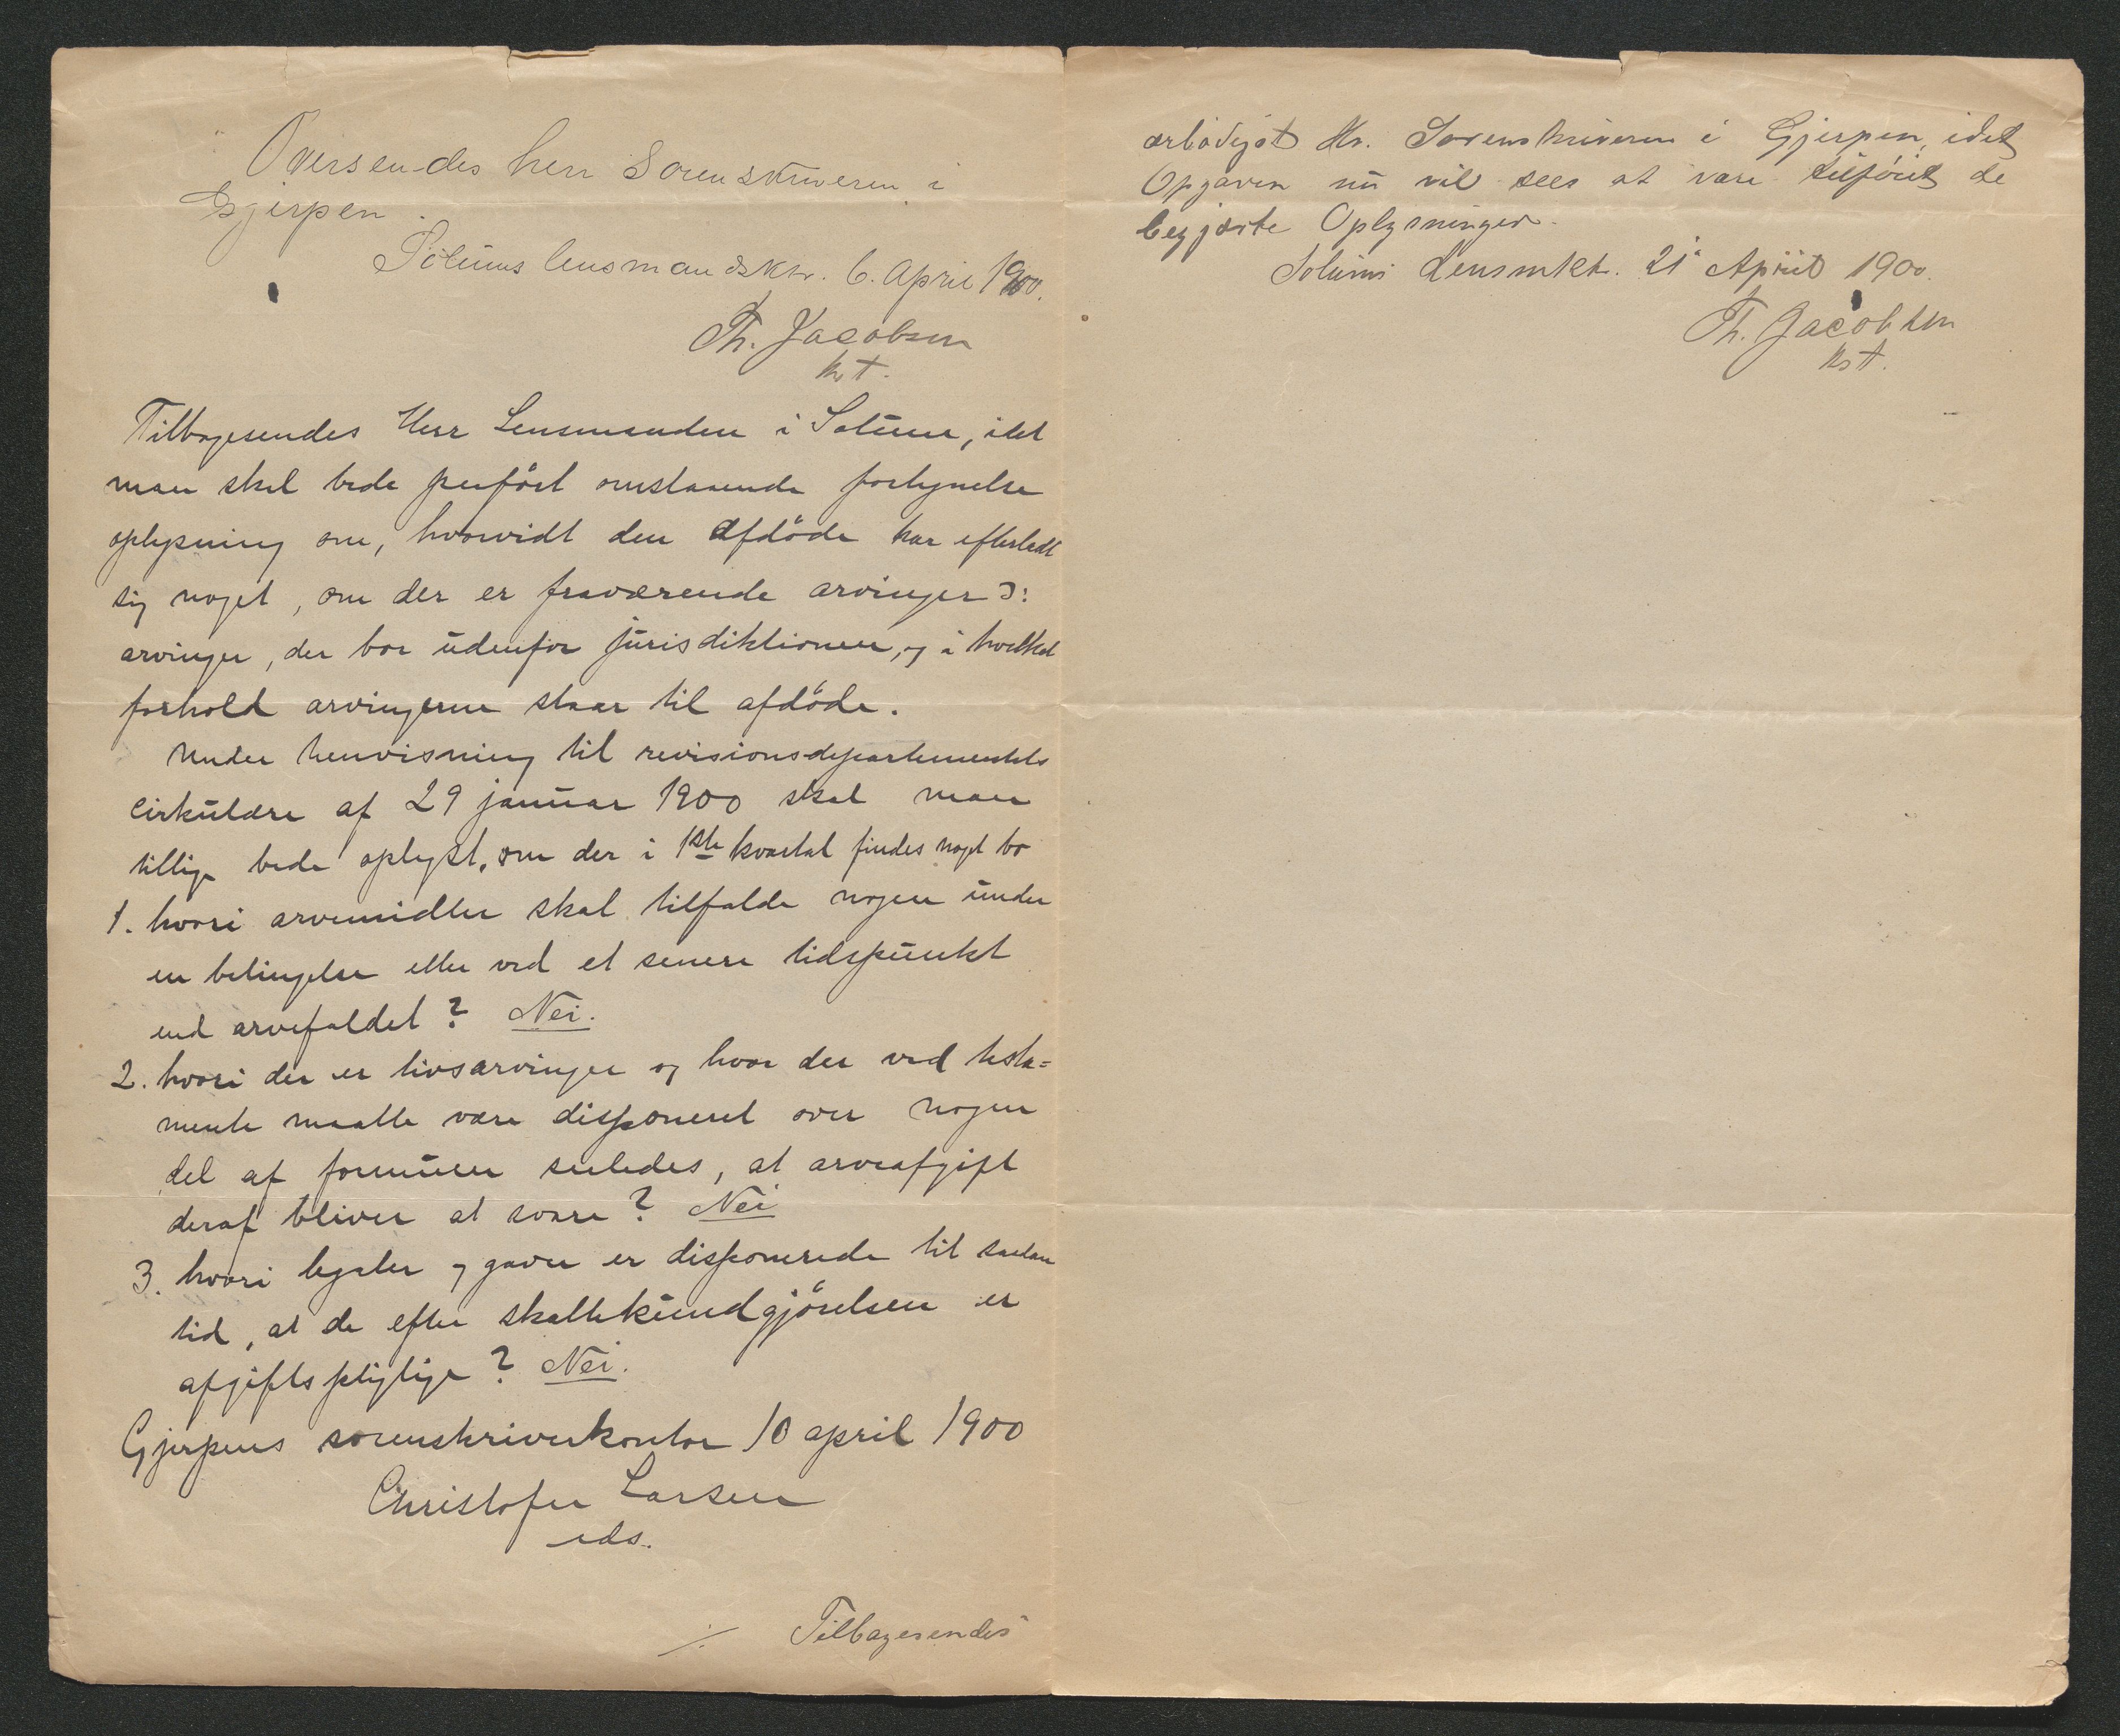 Oversendes herr Sorenskriveren i
Gjerpen.
Solums lensmandsktr. 6. April 1900.
Th. Jacobsen
kst.
Tilbagesendes Herr Lensmanden i Solum, idet
man skal bede paaført omstaaende fortegnelse
oplysning om, hvorvidt den afdøde har efterladt
sig noget, om der er fraværende arvinger ɔ:
arvinger, der bor udenfor jurisdiktionen, og i hvilket
forhold arvingerne staar til afdøde.
Under henvisning til revisionsdepartementets
cirkulære af 29 januar 1900 skal man
tillige bede oplyst, om der i 1ste kvartal findes noget bo
1. hvori arvemidler skal tilfalde nogen under
en betingelse eller ved et senere tidspunkt
end arvefaldet? Nei.
2. hvori der er livsarvinger og hvor der ved testa=
mente maatte være disponeret over nogen
del af formuen saaledes, at arveafgift
deraf bliver at svare? Nei
3. hvori legater og gaver er disponerede til saadan
tid, at de efter skattekundgjørelsen er
afgiftspligtige? Nei.
Gjerpens sorenskriverkontor 10 april 1900
Christofer Larsen
eds.
./. Tilbagesendes
ærbødigst Hr. Sorenskriveren i Gjerpen, idet
Opgaven nu vil sees at være tilføiet de
begjærte Oplysninger.
Solums Lensmkt. 21 April 1900.
Th. Jacobsen
kst.